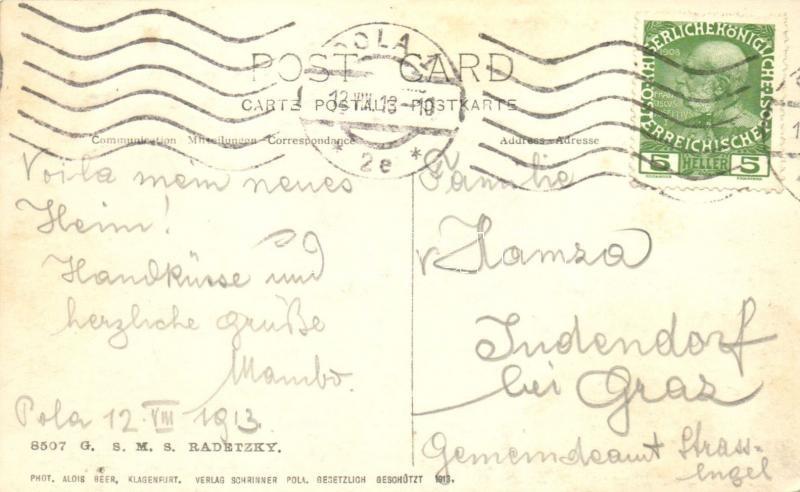 POST CARD
CARTE POSTALE POSTKARTE
Communication Mitteilungen Correspondance
Address - Adresse
POLA 1
12 VIII 13 - 10
* 2e *
1908
5 HELLER 5
Voila mein neues
Heim!
Handküsse und
herzliche Grüße
Mambo.
Pola 12. VIII 1913.
8507 G. S. M. S. RADETZKY.
PHOT. ALOIS BEER, KLAGENFURT. VERLAG SCHRINNER POLA. GESETZLICH GESCHÜTZT 1913.
Familie
v Hamza
Judendorf
bei Graz
Gemeindeamt Strass-
engel